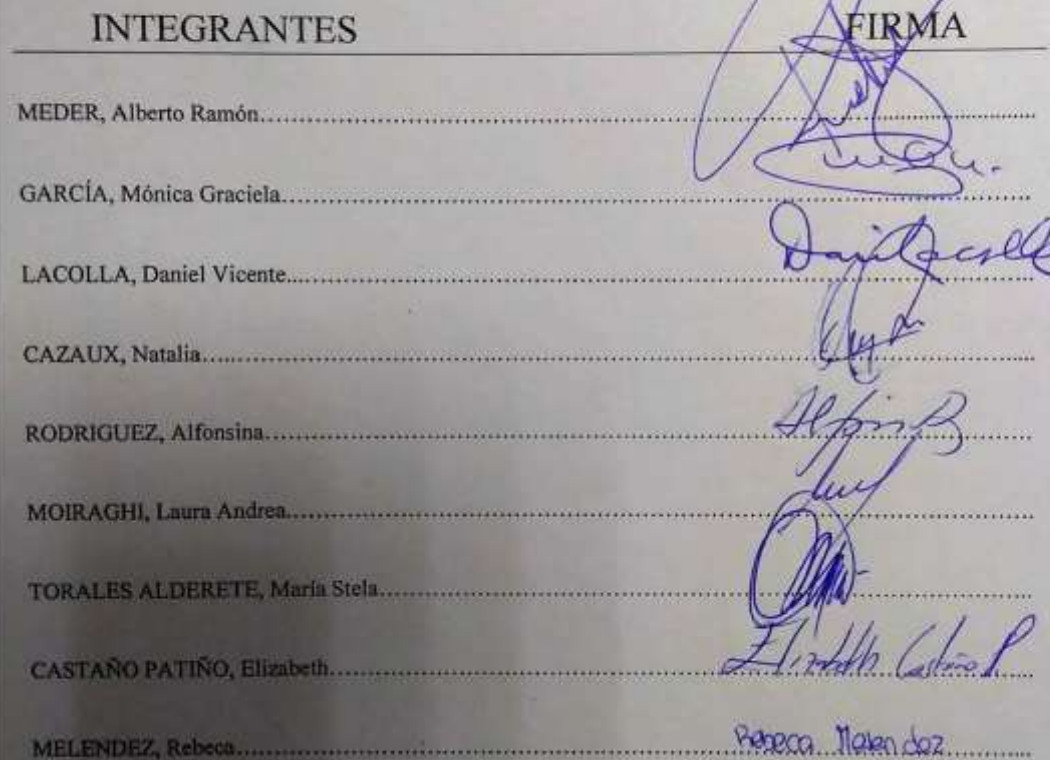 INTEGRANTES FIRMA
MEDER, Alberto Ramón
GARCÍA, Mónica Graciela
LACOLLA, Daniel Vicente
CAZAUX, Natalia
RODRIGUEZ, Alfonsina
MOIRAGHI, Laura Andrea
TORALES ALDERETE, María Stela
CASTAÑO PATIÑO, Elizabeth Elizabeth Castaño P.
MELENDEZ, Rebeca Rebeca Melendez